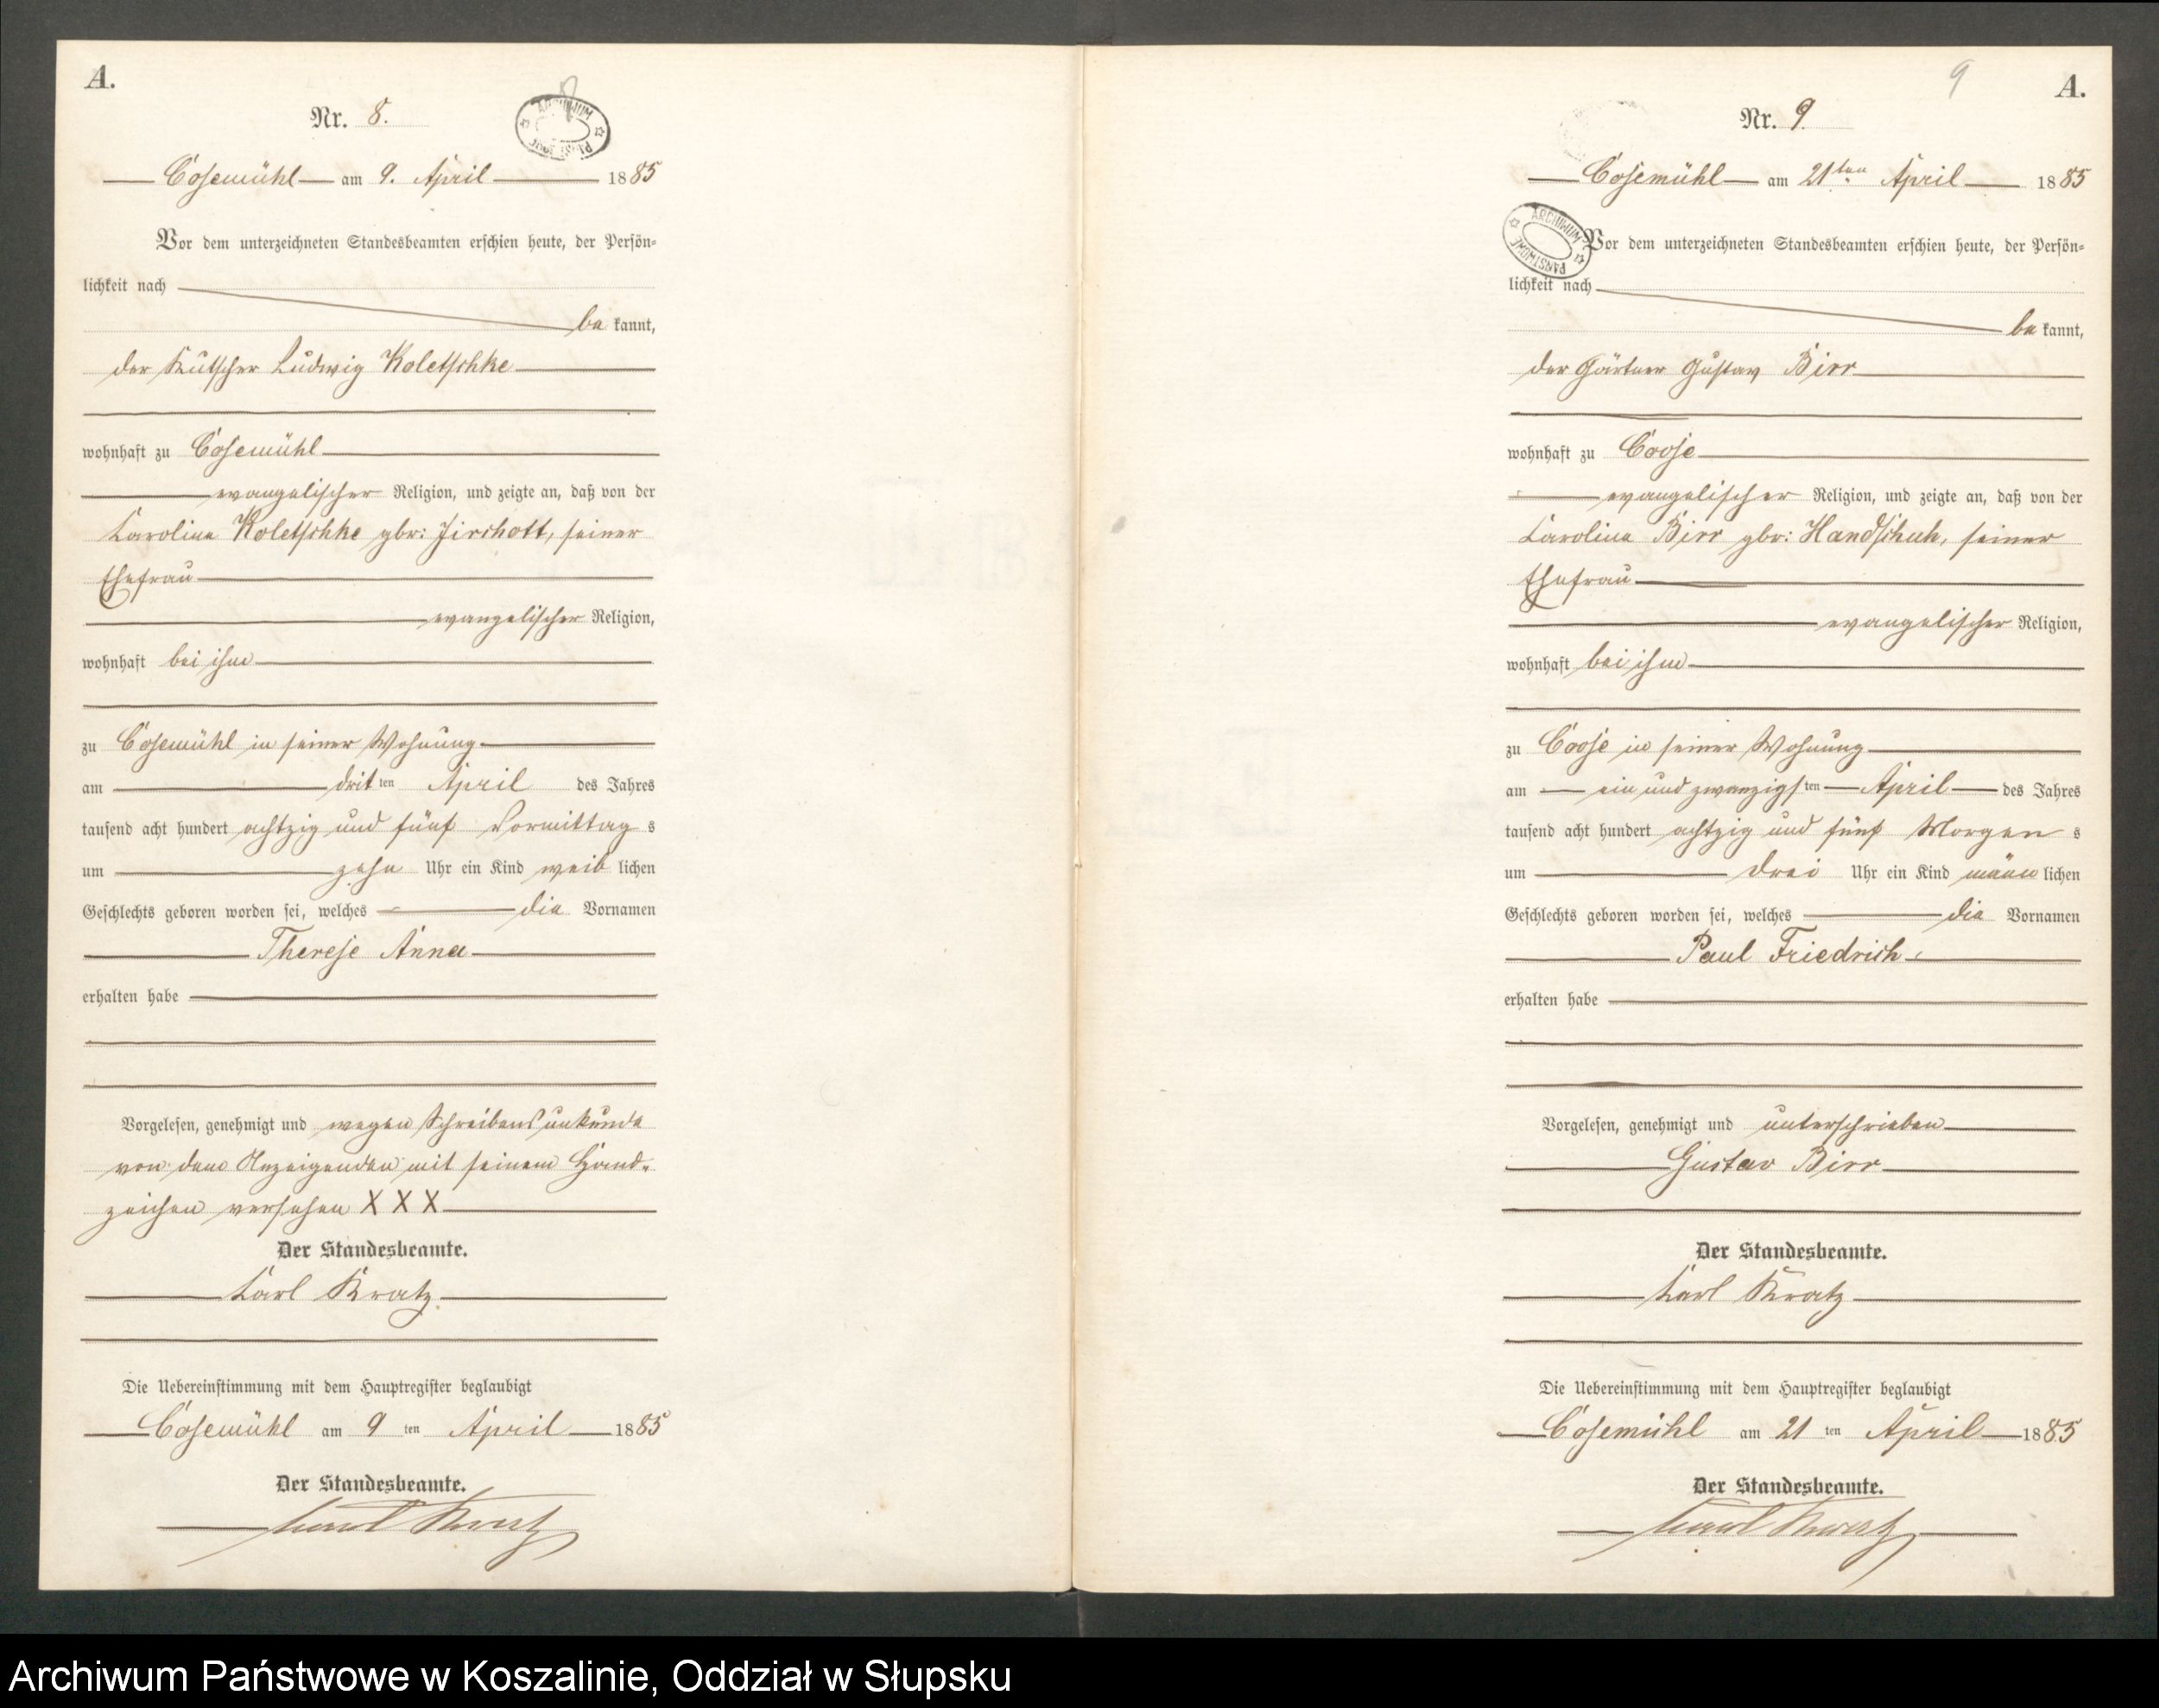 A.
Nr. 8.
Cosemühl am 9. April 1885
Vor dem unterzeichneten Standesbeamten erschien heute, der Persön=
lichkeit nach
be kannt,
der Kutscher Ludwig Koletschke
wohnhaft zu Cosemühl
evangelischer Religion, und zeigte an, daß von der
Karoline Koletschke gbr: Jirchott, seiner
Ehefrau
evangelischer Religion,
wohnhaft bei ihm
zu Cosemühl in seiner Wohnung
am dritten April des Jahres
tausend acht hundert achtzig und fünf Vormittags
um zehn Uhr ein Kind weiblichen
Geschlechts geboren worden sei, welches die Vornamen
Therese Anna
erhalten habe
Vorgelesen, genehmigt und wegen Schreibensunkunde
von dem Anzeigenden mit seinem Hand-
zeichen versehen X X X
Der Standesbeamte.
Karl Kratz
Die Uebereinstimmung mit dem Hauptregister beglaubigt
Cosemühl am 9 ten April 1885
Der Standesbeamte.
Karl Kratz
9
A.
Nr. 9.
Cosemühl am 21ten April 1885
ARCHIWUM PAŃSTWOWE
Vor dem unterzeichneten Standesbeamten erschien heute, der Persön=
lichkeit nach
be kannt,
der Gärtner Gustav Birr
wohnhaft zu Coose
evangelischer Religion, und zeigte an, daß von der
Karoline Birr gbr: Handschuh, seiner
Ehefrau
evangelischer Religion,
wohnhaft bei ihm
zu Coose in seiner Wohnung
am ein und zwanzigsten April des Jahres
tausend acht hundert achtzig und fünf Morgens
um drei Uhr ein Kind männlichen
Geschlechts geboren worden sei, welches die Vornamen
Paul Friedrich
erhalten habe
Vorgelesen, genehmigt und unterschrieben
Gustav Birr
Der Standesbeamte.
Karl Kratz
Die Uebereinstimmung mit dem Hauptregister beglaubigt
Cosemühl am 21 ten April 1885
Der Standesbeamte.
Karl Kratz
Archiwum Państwowe w Koszalinie, Oddział w Słupsku